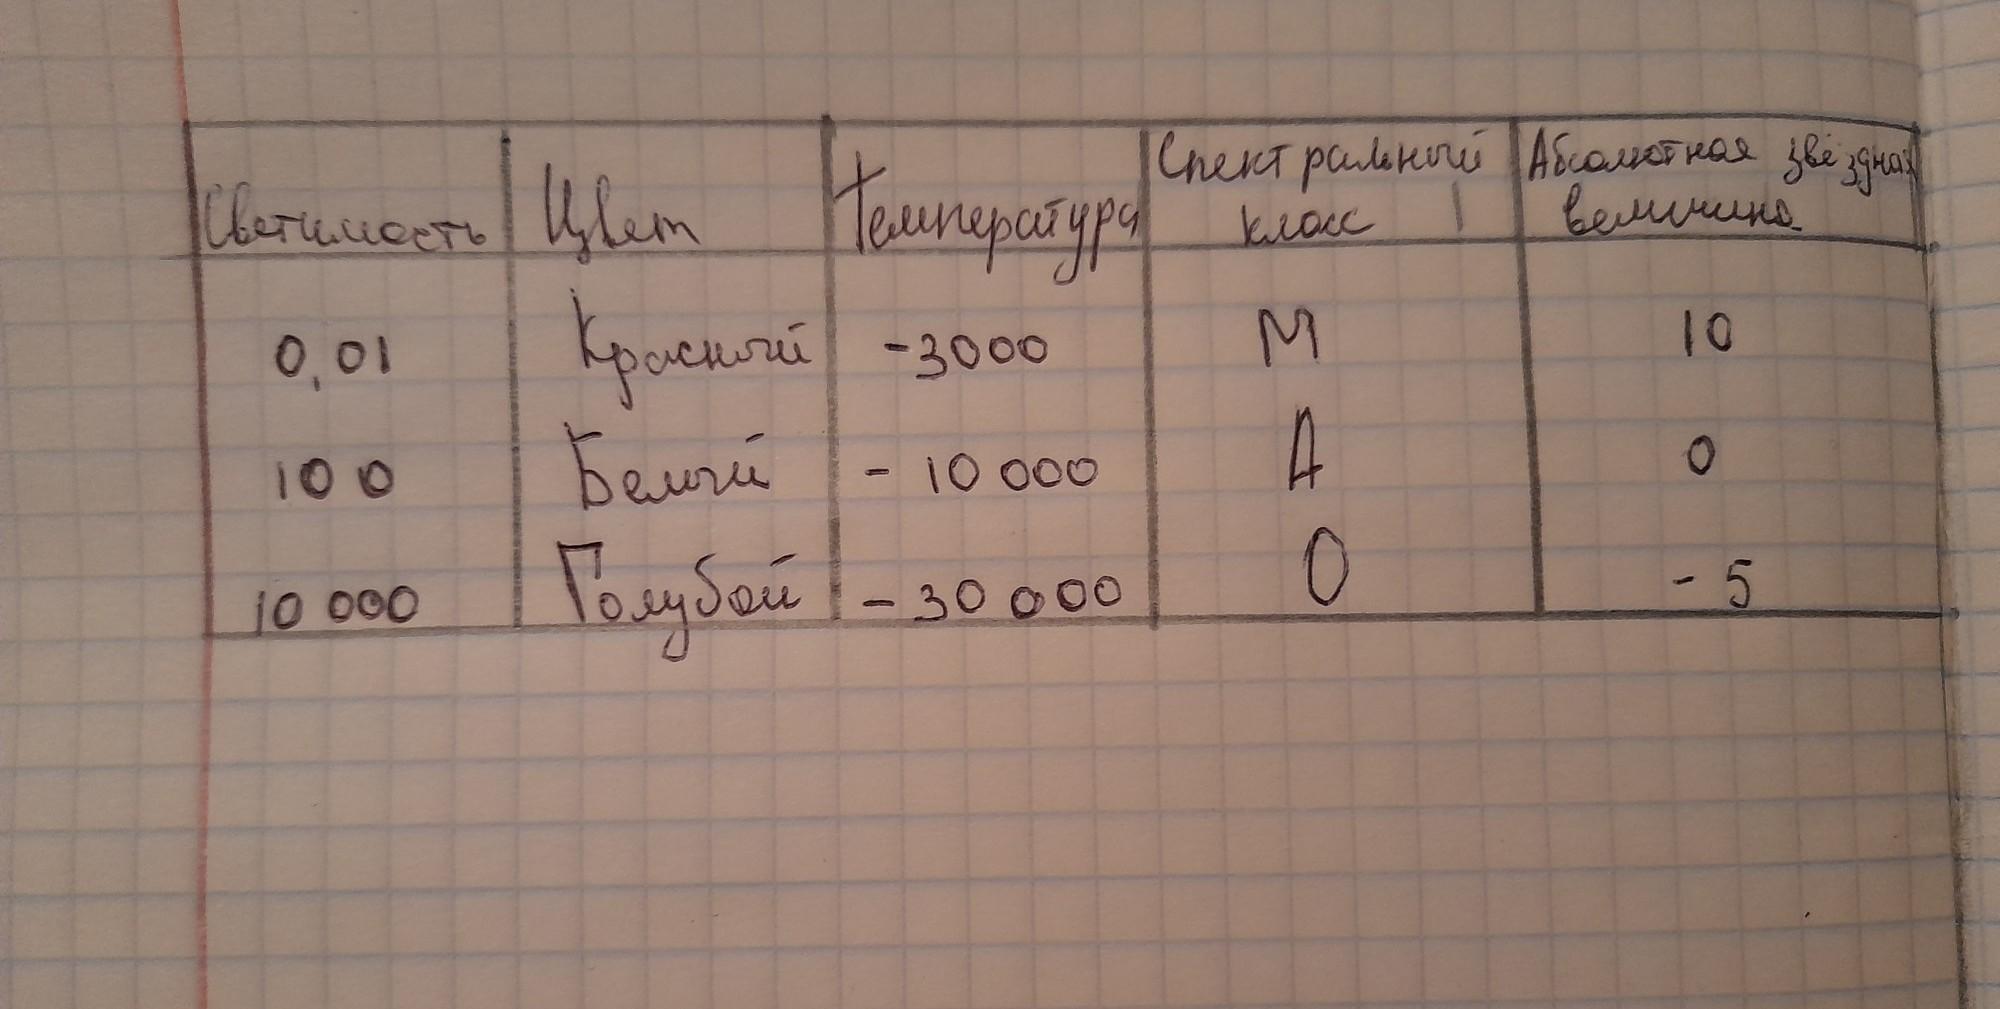 Светимость Цвет Температура Спектральный класс Абсолютная звёздная величина
0,01 Красный -3000 М 10
100 Белый - 10 000 А 0
10 000 Голубой - 30 000 О - 5